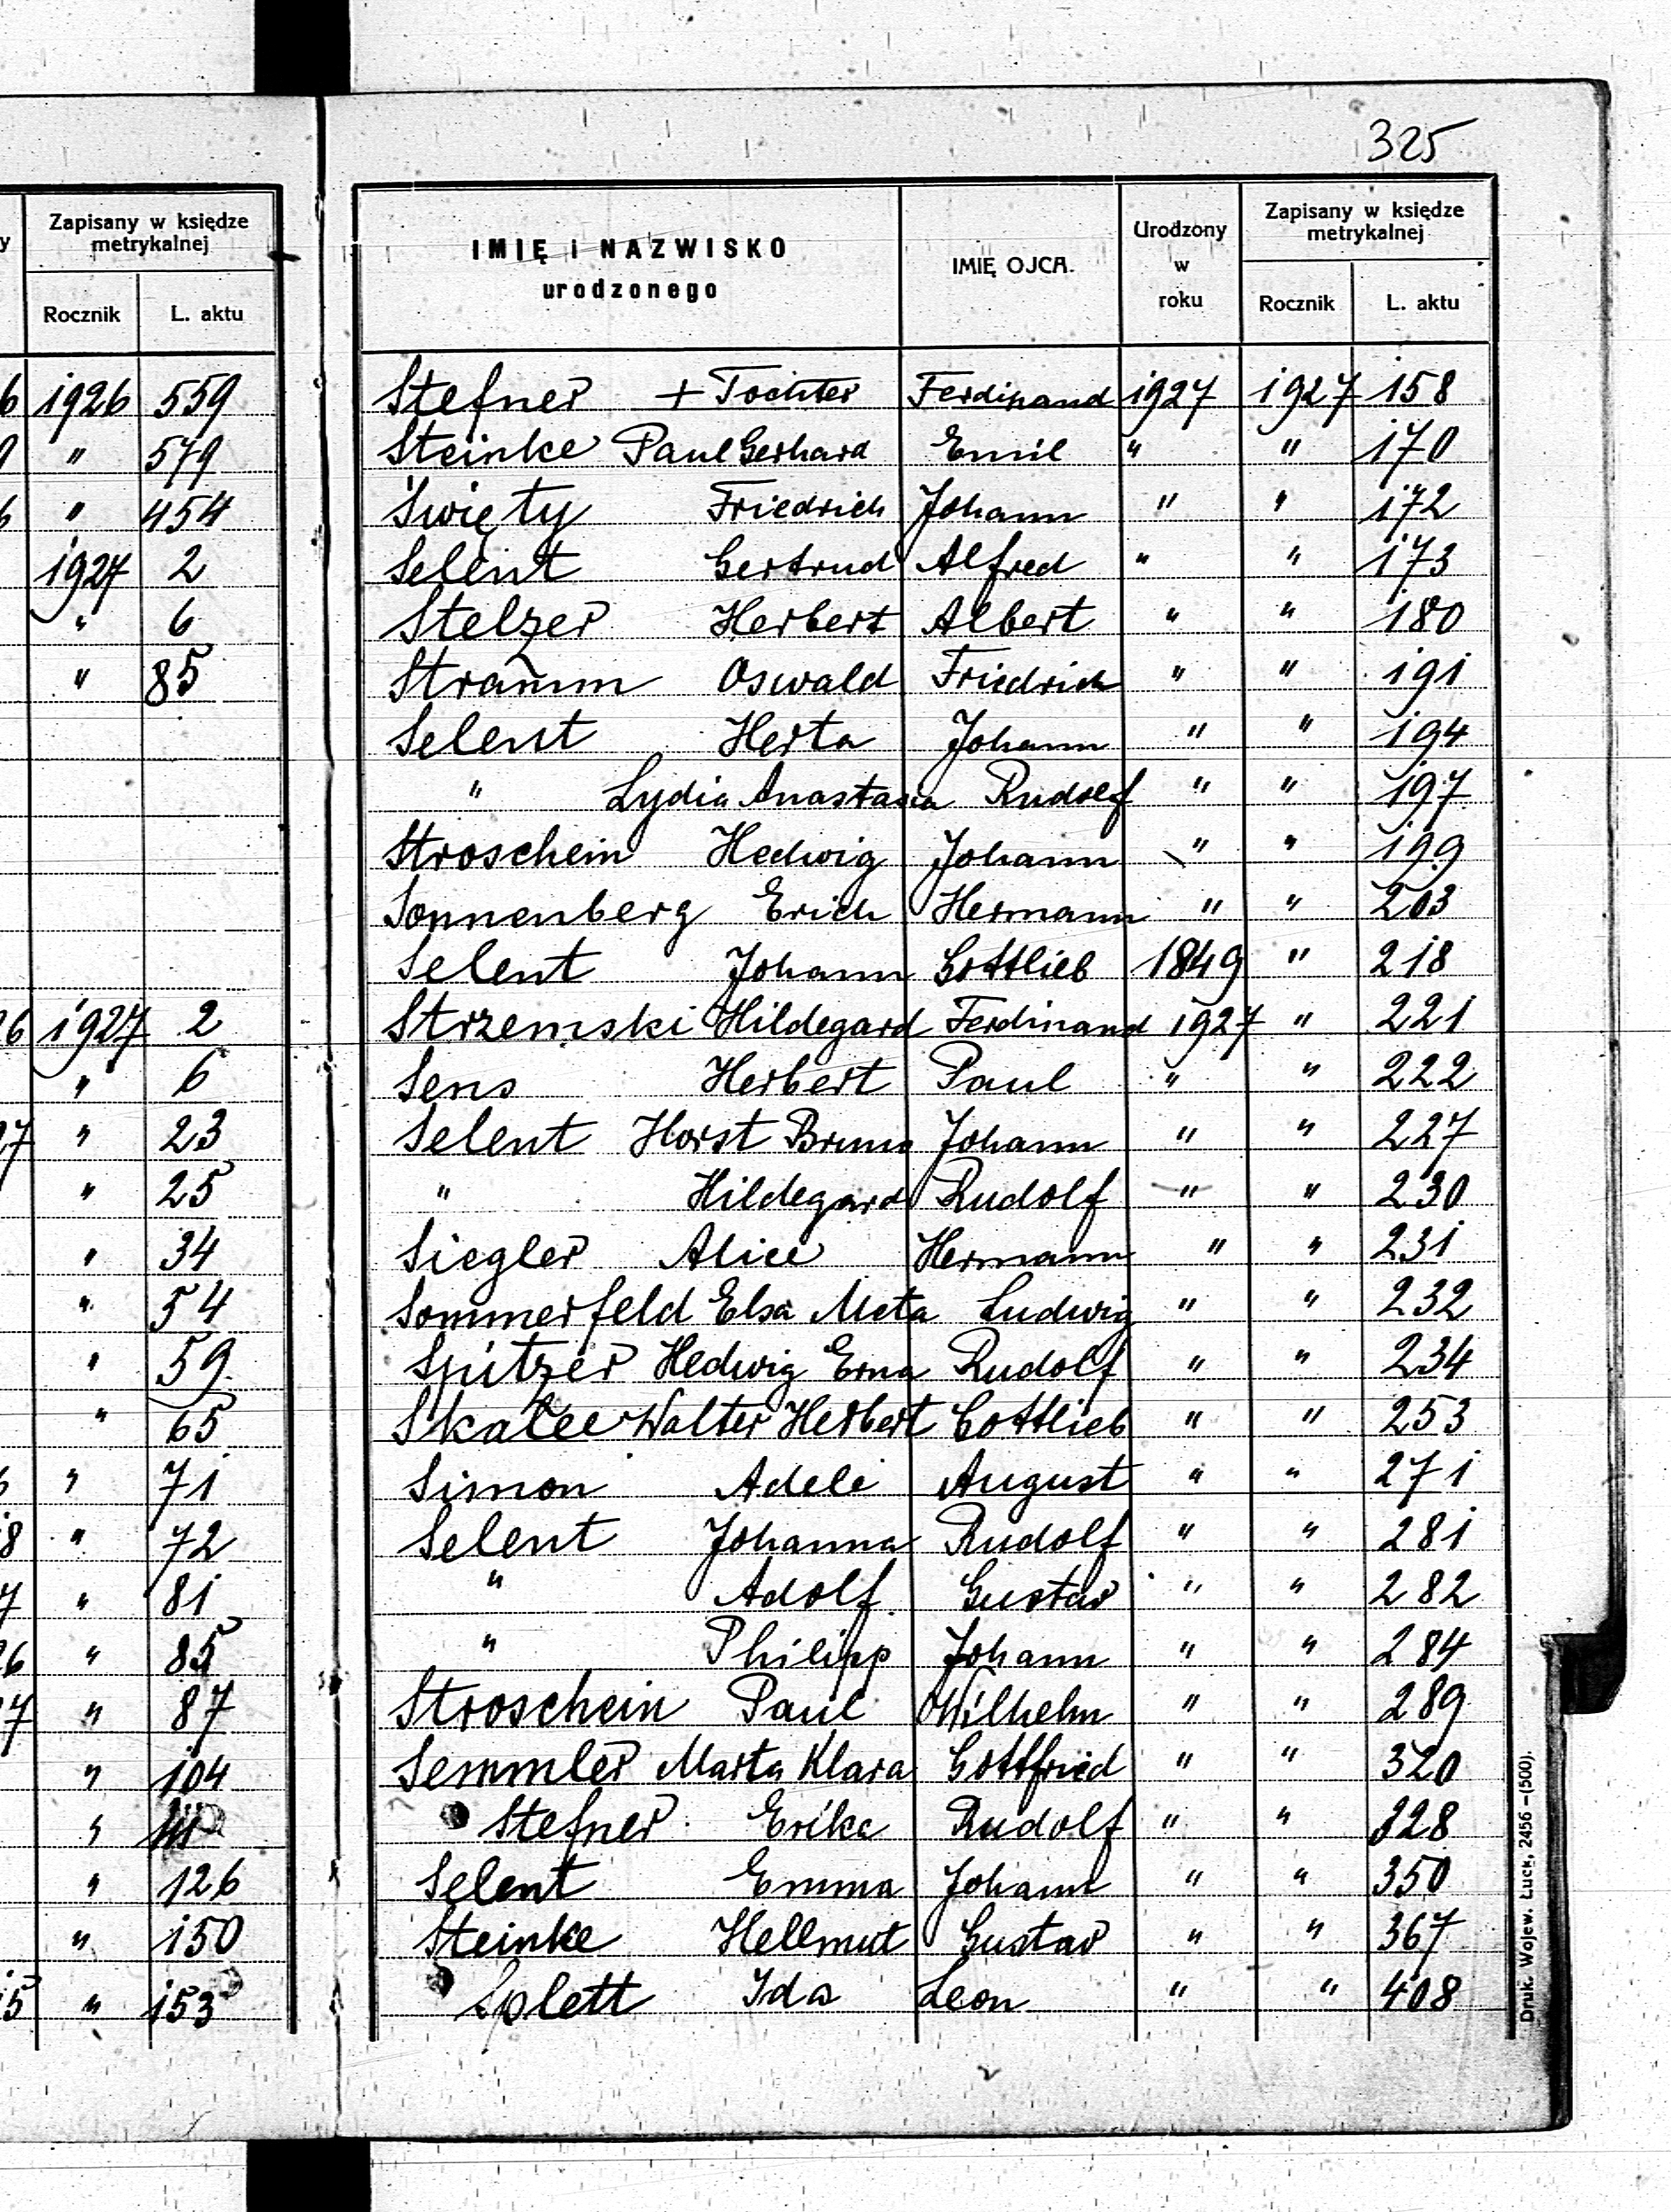 325
y
Zapisany w księdze
metrykalnej
Rocznik L. aktu
6 1926 559
9 " 579
6 " 454
1927 2
" 6
" 85
26 1927 2
" 6
27 " 23
" 25
" 34
" 54
" 59
" 65
" 71
8 " 72
7 " 81
26 " 85
27 " 87
" 104
"
" 126
" 150
15 " 153
IMIĘ i NAZWISKO
urodzonego
IMIĘ OJCA.
Urodzony
w
roku
Zapisany w księdze
metrykalnej
Rocznik L. aktu
Stefner + Tochter Ferdinand 1927 1927 158
Steinke Paul Gerhard Emil " " 170
Święty Friedrich Johann " " 172
Selent Gertrud Alfred " " 173
Stelzer Herbert Albert " " 180
Stramm Oswald Friedrich " " 191
Selent Herta Johann " " 194
" Lydia Anastasia Rudolf " " 197
Stroschein Hedwig Johann " " 199
Sonnenberg Erich Hermann " " 203
Selent Johann Gottlieb 1849 " 218
Strzemski Hildegard Ferdinand 1927 " 221
Sens Herbert Paul " " 222
Selent Horst Bruno Johann " " 227
" Hildegard Rudolf " " 230
Siegler Alice Hermann " " 231
Sommerfeld Elsa Meta Ludwig " " 232
Spitzer Hedwig Erna Rudolf " " 234
Skalee Walter Herbert Gottlieb " " 253
Simon Adele August " " 271
Selent Johanna Rudolf " " 281
" Adolf Gustav " " 282
" Philipp Johann " " 284
Stroschein Paul Wilhelm " " 289
Semmler Marta Klara Gottfried " " 320
Stefner Erika Rudolf " " 328
Selent Emma Johann " " 350
Steinke Hellmut Gustav " " 367
Splett Ida Leon " " 408
Druk. Wojew. Łuck, 2456 –(500).